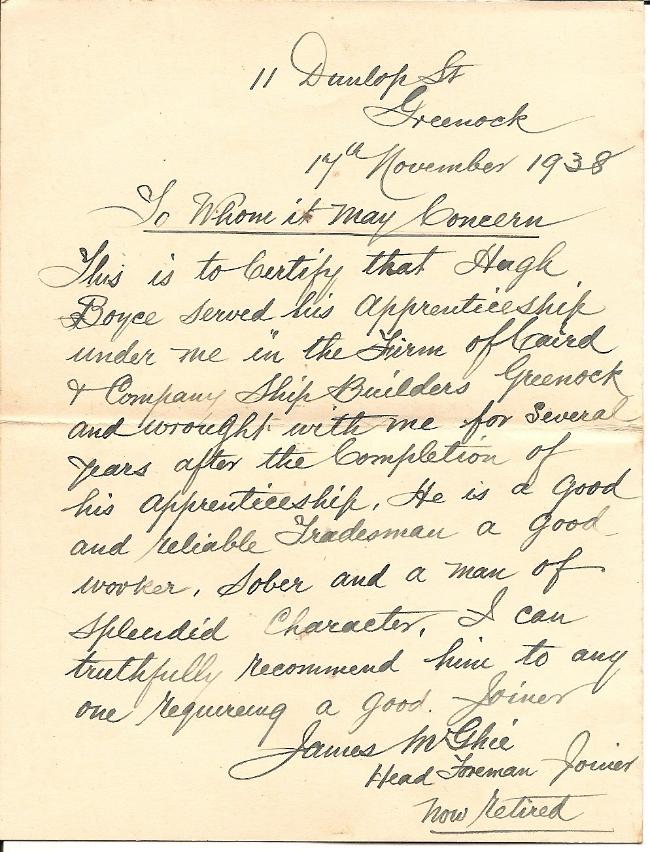 11 Dunlop St
Greenock
17th November 1938
To Whom it May Concern
This is to Certify that Hugh
Boyce served his Apprenticeship
under me in the Firm of Caird
& Company Ship Builders Greenock
and wrought with me for several
years after the Completion of
his apprenticeship. He is a good
and reliable Tradesman a good
worker, Sober and a man of
splendid Character. I can
truthfully recommend him to any
one requireing a good. Joiner
James McGhie
Head Foreman Joiner
now retired